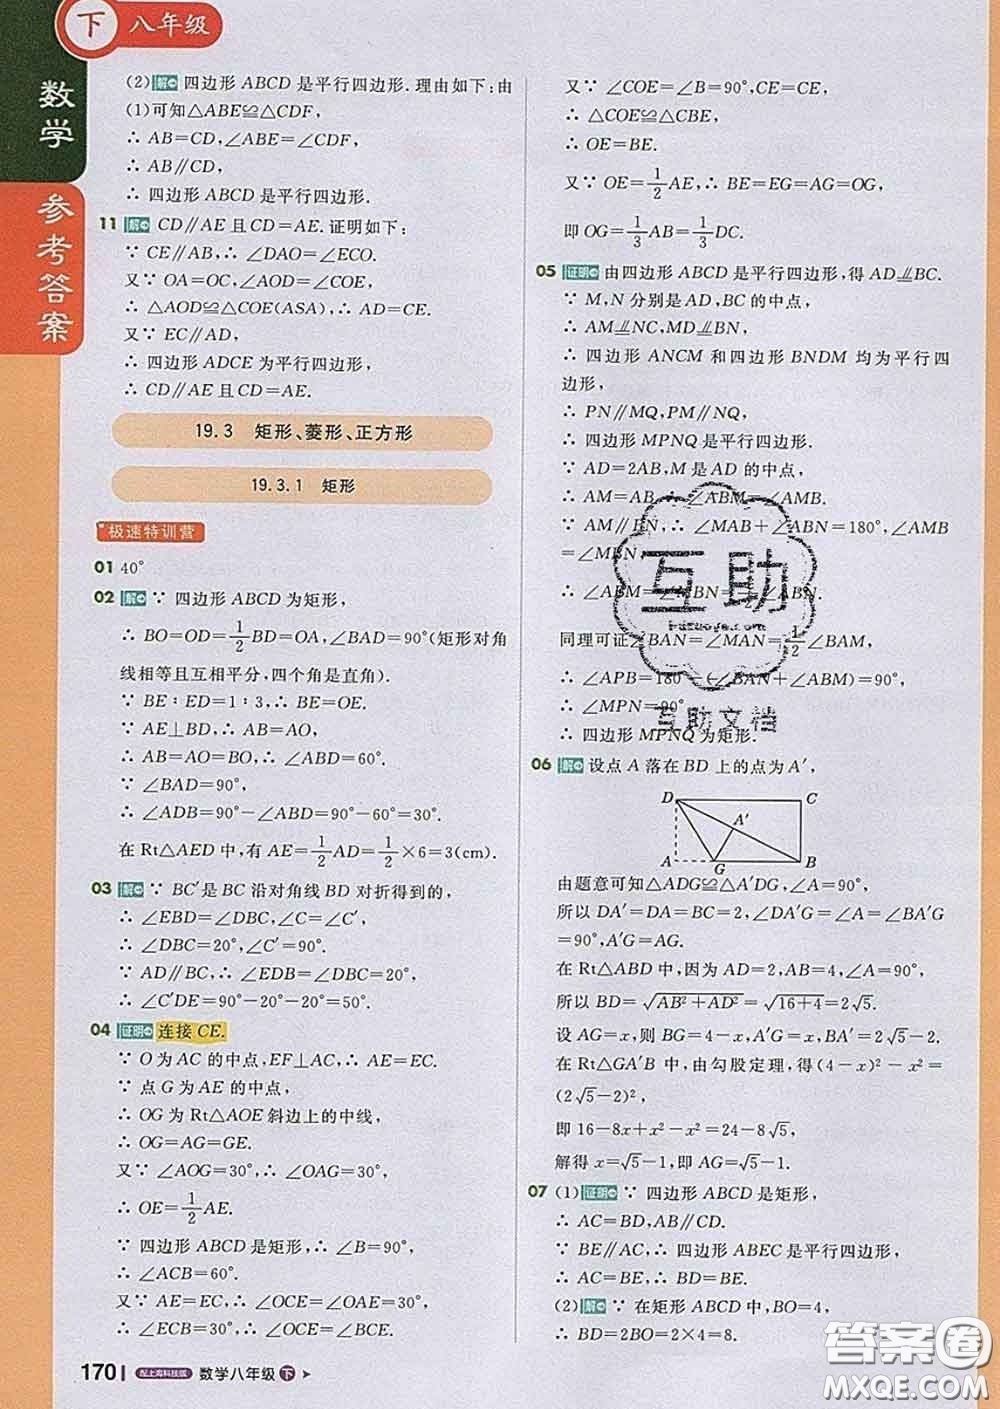 下 八年级
数学
参考答案
(2)解 四边形 ABCD 是平行四边形.理由如下:由
(1)可知△ABE≌△CDF,
∴ AB=CD,∠ABE=∠CDF,
∴ AB∥CD,
∴ 四边形 ABCD 是平行四边形.
11 解 CD∥AE 且 CD=AE.证明如下:
∵ CE∥AB,∴ ∠DAO=∠ECO.
又∵ OA=OC,∠AOD=∠COE,
∴ △AOD≌△COE(ASA),∴ AD=CE.
又∵ EC∥AD,
∴ 四边形 ADCE 为平行四边形,
∴ CD∥AE 且 CD=AE.
19.3 矩形、菱形、正方形
19.3.1 矩形
极速特训营
01 40°
02 解 ∵ 四边形 ABCD 为矩形,
∴ BO=OD=1/2BD=OA,∠BAD=90°(矩形对角
线相等且互相平分,四个角是直角).
∵ BE∶ED=1∶3,∴ BE=OE.
∵ AE⊥BD,∴ AB=AO,
∴ AB=AO=BO,∴ ∠ABD=60°.
∵ ∠BAD=90°,
∴ ∠ADB=90°-∠ABD=90°-60°=30°.
在 Rt△AED 中,有 AE=1/2AD=1/2×6=3(cm).
03 解 ∵ BC′是 BC 沿对角线 BD 对折得到的,
∴ ∠EBD=∠DBC,∠C=∠C′,
∴ ∠DBC=20°,∠C′=90°.
∵ AD∥BC,∴ ∠EDB=∠DBC=20°,
∴ ∠C′DE=90°-20°-20°=50°.
04 证明 连接 CE.
∵ O 为 AC 的中点,EF⊥AC,∴ AE=EC.
∵ 点 G 为 AE 的中点,
∴ OG 为 Rt△AOE 斜边上的中线,
∴ OG=AG=GE.
又∵ ∠AOG=30°,∴ ∠OAG=30°,
∴ OE=1/2AE.
∵ 四边形 ABCD 是矩形,∴ ∠B=90°,
∴ ∠ACB=60°.
又∵ AE=EC,∴ ∠OCE=∠OAE=30°,
∴ ∠ECB=30°,∴ ∠OCE=∠BCE.
170 配上海科技版 数学八年级 下
又∵ ∠COE=∠B=90°,CE=CE,
∴ △COE≌△CBE,
∴ OE=BE.
又∵ OE=1/2AE,∴ BE=EG=AG=OG,
即 OG=1/3AB=1/3DC.
05 证明 由四边形 ABCD 是平行四边形,得 AD∥=BC.
∵ M,N 分别是 AD,BC 的中点,
∴ AM∥=NC,MD∥=BN,
∴ 四边形 ANCM 和四边形 BNDM 均为平行四
边形,
∴ PN∥MQ,PM∥NQ,
∴ 四边形 MPNQ 是平行四边形.
∵ AD=2AB,M 是 AD 的中点,
∴ AM=AB,∴ ∠ABM=∠AMB.
∵ AM∥BN,∴ ∠MAB+∠ABN=180°,∠AMB
=∠MBN,
∴ ∠ABM=
同理可证∠BAN=∠MAN=1/2∠BAM,
∴ ∠APB=180°-(∠BAN+∠ABM)=90°,
∴ ∠MPN=90°,
∴ 四边形 MPNQ 为矩形.
06 解 设点 A 落在 BD 上的点为 A′,
D C
A′
A G B
由题意可知△ADG≌△A′DG,∠A=90°,
所以 DA′=DA=BC=2,∠DA′G=∠A=∠BA′G
=90°,A′G=AG.
在 Rt△ABD 中,因为 AD=2,AB=4,∠A=90°,
所以 BD=√(AB²+AD²)=√(16+4)=2√5.
设 AG=x,则 BG=4-x,A′G=x,BA′=2√5-2,
在 Rt△GA′B 中,由勾股定理,得(4-x)²-x²=
(2√5-2)²,
即 16-8x+x²-x²=24-8√5,
解得 x=√5-1,即 AG=√5-1.
07 (1)证明 ∵ 四边形 ABCD 是矩形,
∴ AC=BD,AB∥CD.
∵ BE∥AC,∴ 四边形 ABEC 是平行四边形,
∴ AC=BE,∴ BD=BE.
(2)解 ∵ 在矩形 ABCD 中,BO=4,
∴ BD=2BO=2×4=8.
互助
互助文档
答案卷
MXQE.COM